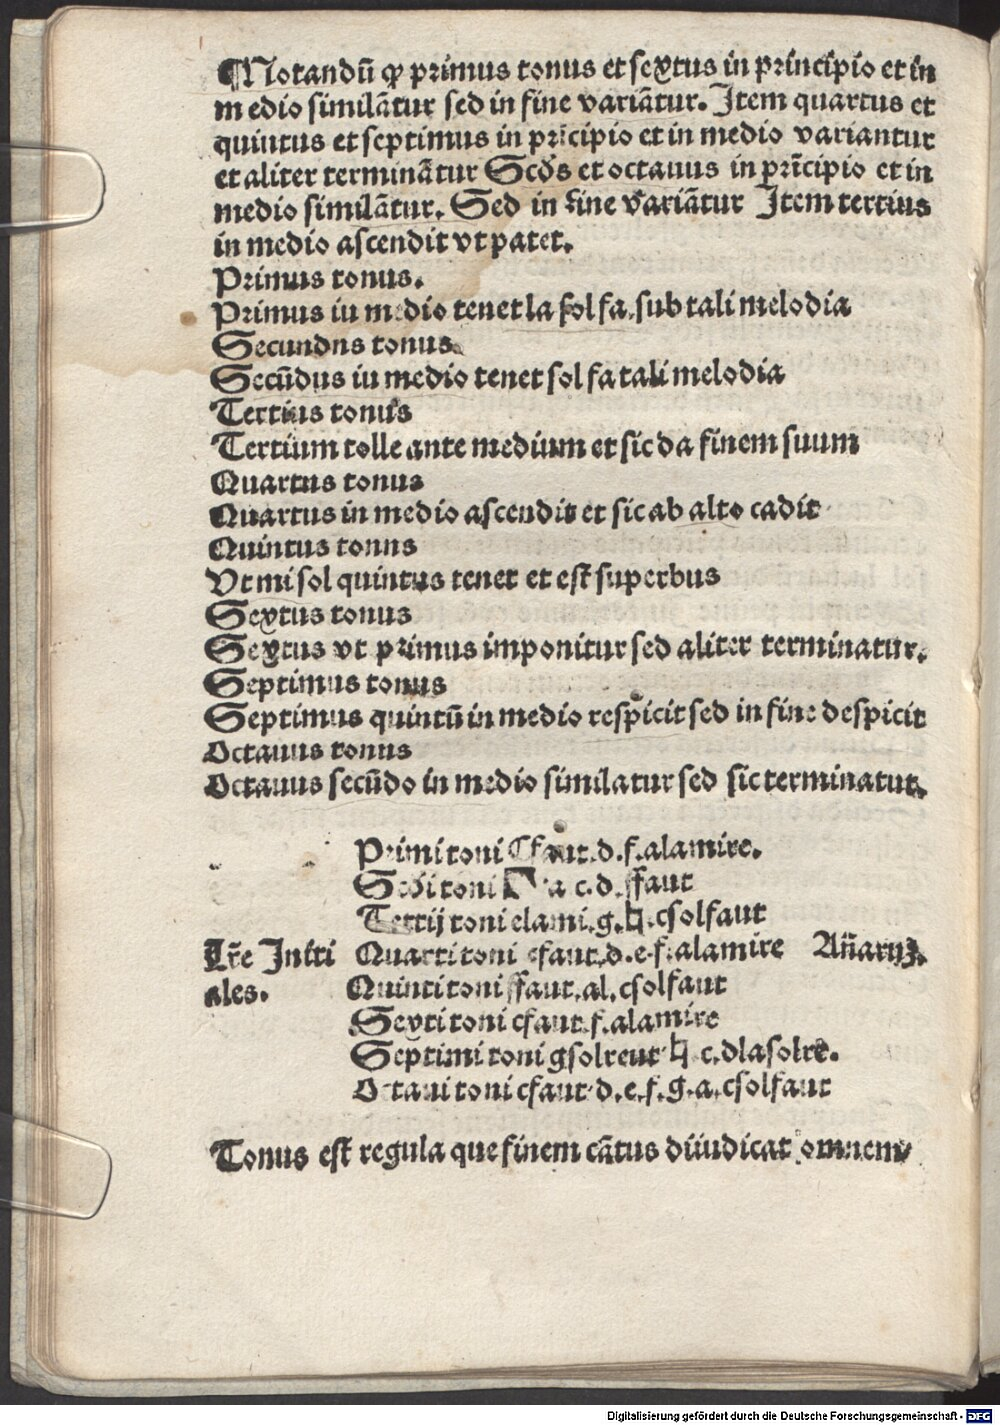 ¶Notandū ꝙ primus tonus et sextus in principio et in
medio similātur sed in fine variātur. Item quartus et
quiutus et septimus in prīcipio et in medio variantur
et aliter terminātur Scds et octauus in prīcipio et in
medio similātur. Sed in fine variātur Item tertius
in medio ascendit vt patet.
Primus tonus.
Primus iu medio tenet la sol fa. sub tali melodia
Secundns tonus
Secūdus iu medio tenet sol fa tali melodia
Tertius tonus
Tertium tolle ante medium et sic da finem suum
Quartus tonus
Quartus in medio ascendit et sic ab alto cadit
Quintus tonns
Vt mi sol quintus tenet et est superbus
Sextus tonus
Sextus vt primus imponitur sed aliter terminatur.
Septimus tonus
Septimus quintū in medio respicit sed in fine despicit
Octauus tonus
Octauus secūdo in medio similatur sed sic terminatur.
Primi toni Cfaut.d.f.alamire.
Scdi toni a c.d.ffaut
Tertij toni elami.g.♮.csolfaut
Lr̄e Initi Quarti toni cfaut.d.e.f.alamire Añarꝝ.
ales. Quinti toni ffaut.al.csolfaut
Sexti toni cfaut.f.alamire
Septimi toni gsolreut ♮ c.dlasolre.
Octaui toni cfaut.d.e.f.g.a.csolfaut
Tonus est regula que finem cātus diiudicat omnem